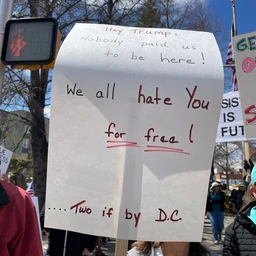 Hey Trump:
Nobody paid us
to be here!
We all hate You
for free!
.... Two if by D.C
GE
O
S
SIS
IS
FUT